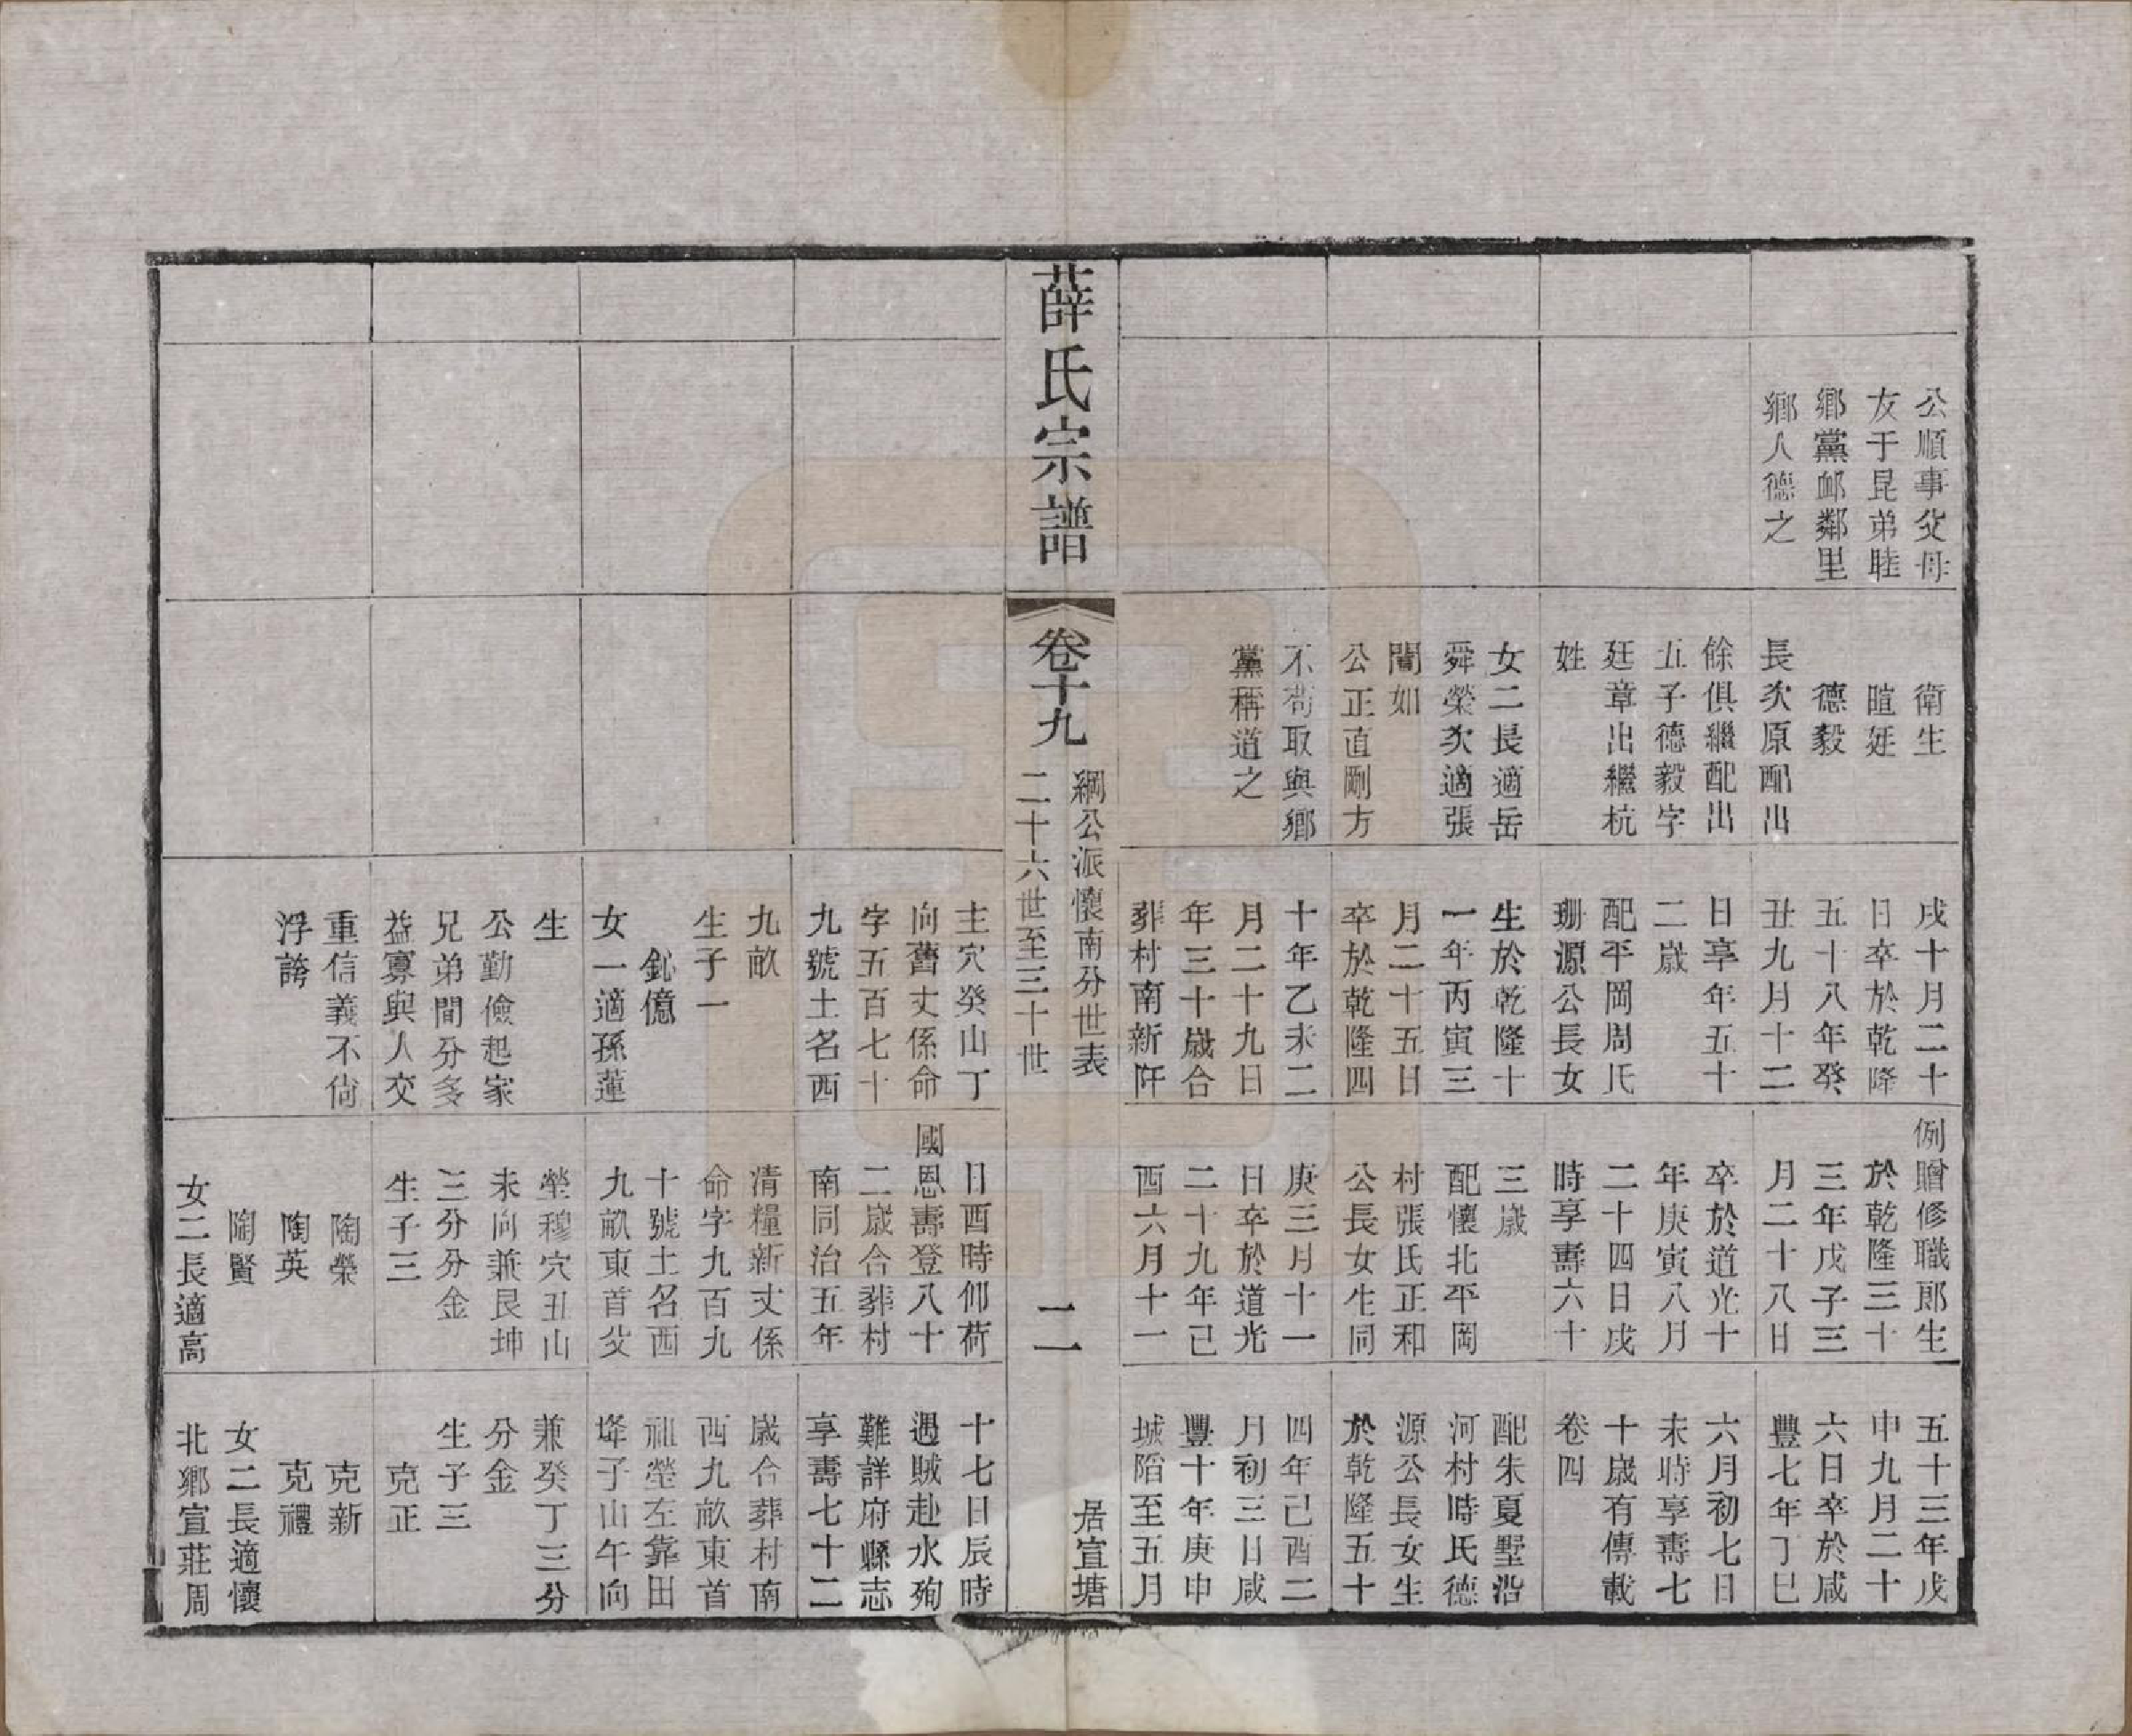 公順事父母
友于昆弟睦
鄉黨卹鄰里
鄉人德之
衛生
暄廷
德毅
長次原配出
餘俱繼配出
五子德毅字
廷章出繼杭
姓
女二長適岳
舜榮次適張
閶如
公正直剛方
不苟取與鄉
黨稱道之
戌十月二十
日卒於乾隆
五十八年癸
丑九月十二
日享年五十
二歲
配平岡周氏
珊源公長女
生於乾隆十
一年丙寅三
月二十五日
卒於乾隆四
十年乙未二
月二十九日
年三十歲合
葬村南新阡
例贈修職郎生
於乾隆三十
三年戊子三
月二十八日
卒於道光十
年庚寅八月
二十四日戌
時享壽六十
三歲
配懷北平岡
村張氏正和
公長女生同
庚三月十一
日卒於道光
二十九年己
酉六月十一
五十三年戊
申九月二十
六日卒於咸
豐七年丁巳
六月初七日
未時享壽七
十歲有傳載
卷四
配朱夏墅沿
河村時氏德
源公長女生
於乾隆五十
四年己酉二
月初三日咸
豐十年庚申
城陷至五月
薛氏宗譜
卷十九
綱公派懷南分世表
二十六世至三十世
二
居宣塘
主穴癸山丁
向舊丈係命
字五百七十
九號土名西
九畝
生子一
釚億
女一適孫蓮
生
公勤儉起家
兄弟間分多
益寡與人交
重信義不尙
浮誇
日酉時仰荷
國恩壽登八十
二歲合葬村
南同治五年
清糧新丈係
命字九百九
十號土名西
九畝東首父
塋穆穴丑山
未向兼艮坤
三分分金
生子三
陶榮
陶英
陶賢
女二長適高
十七日辰時
遇賊赴水殉
難詳府縣志
享壽七十二
歲合葬村南
西九畝東首
祖塋左靠田
埄子山午向
兼癸丁三分
分金
生子三
克正
克新
克禮
女二長適懷
北鄉宣莊周